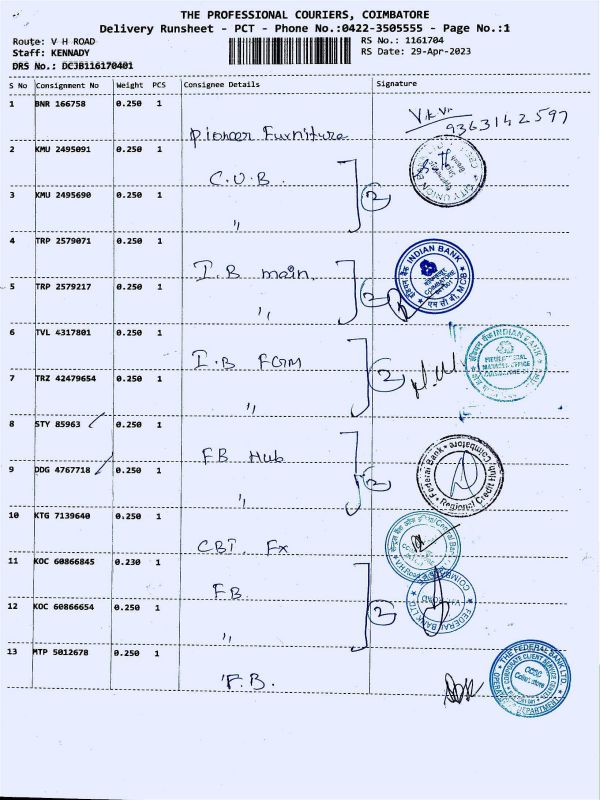 THE PROFESSIONAL COURIERS, COIMBATORE
Delivery Runsheet - PCT - Phone No.:0422-3505555 - Page No.:1
Route: V H ROAD
RS No.: 1161704
Staff: KENNADY
RS Date: 29-Apr-2023
DRS No.: DCJB116170401
S No Consignment No Weight PCS Consignee Details Signature
1 BNR 166758 0.250 1
Pioneer Furniture
9363142597
2 KMU 2495091 0.250 1
C.U.B.
2
CITY UNION BANK
3 KMU 2495690 0.250 1
"
4 TRP 2579071 0.250 1
I.B main
2
INDIAN BANK
COIMBATORE
5 TRP 2579217 0.250 1
"
6 TVL 4317801 0.250 1
I.B FGM
2
INDIAN BANK
7 TRZ 42479654 0.250 1
"
8 STY 85963 0.250 1
FB Hub
2
Federal Bank
Regional Credit Hub, Coimbatore
9 DDG 4767718 0.250 1
"
10 KTG 7139640 0.250 1
CBI. Fx
Central Bank
11 KOC 60866845 0.230 1
FB
2
FEDERAL BANK LTD.
V.H. ROAD
COIMBATORE
12 KOC 60866654 0.250 1
"
13 MTP 5012678 0.250 1
F.B.
THE FEDERAL BANK LTD.
CORPORATE CLIENT SERVICE CENTRE
CCSC
Coimbatore
OPERATIONS DEPARTMENT